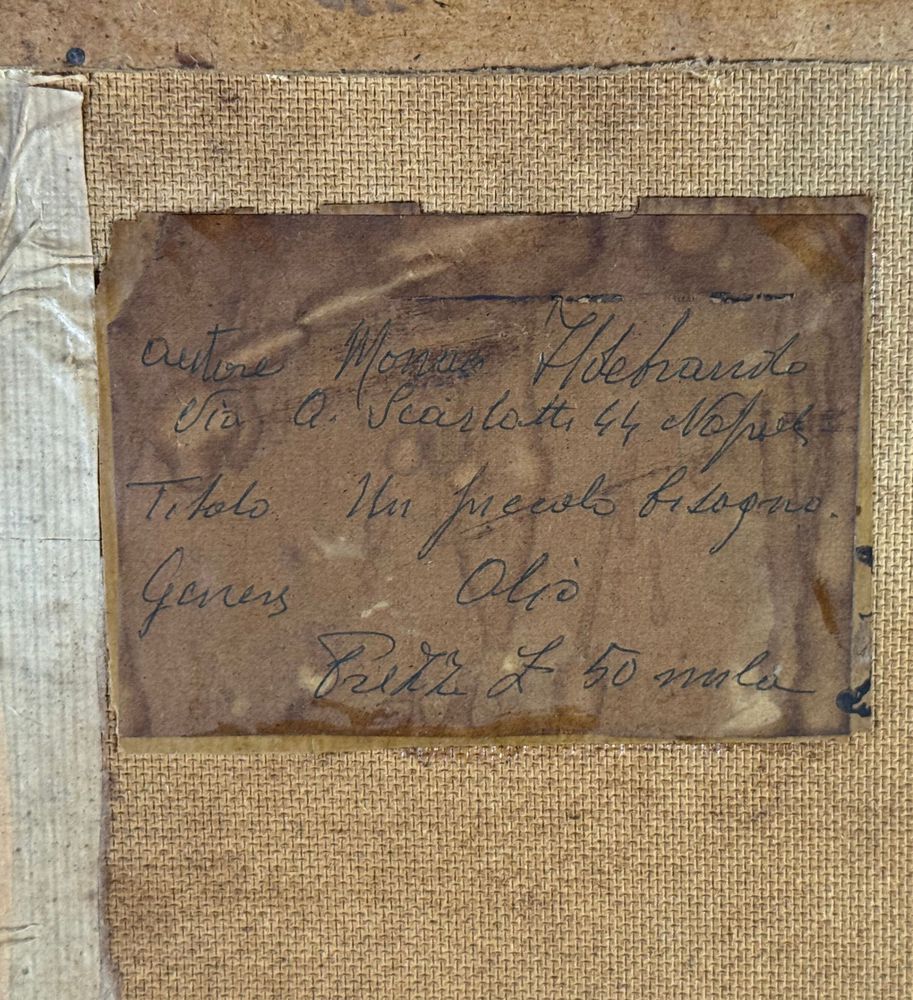 autore Monaco Ildebrando
Via A. Scarlatti 44 Napoli
Titolo Un piccolo bisogno.
Genere Olio
Prezzo L 50 mila